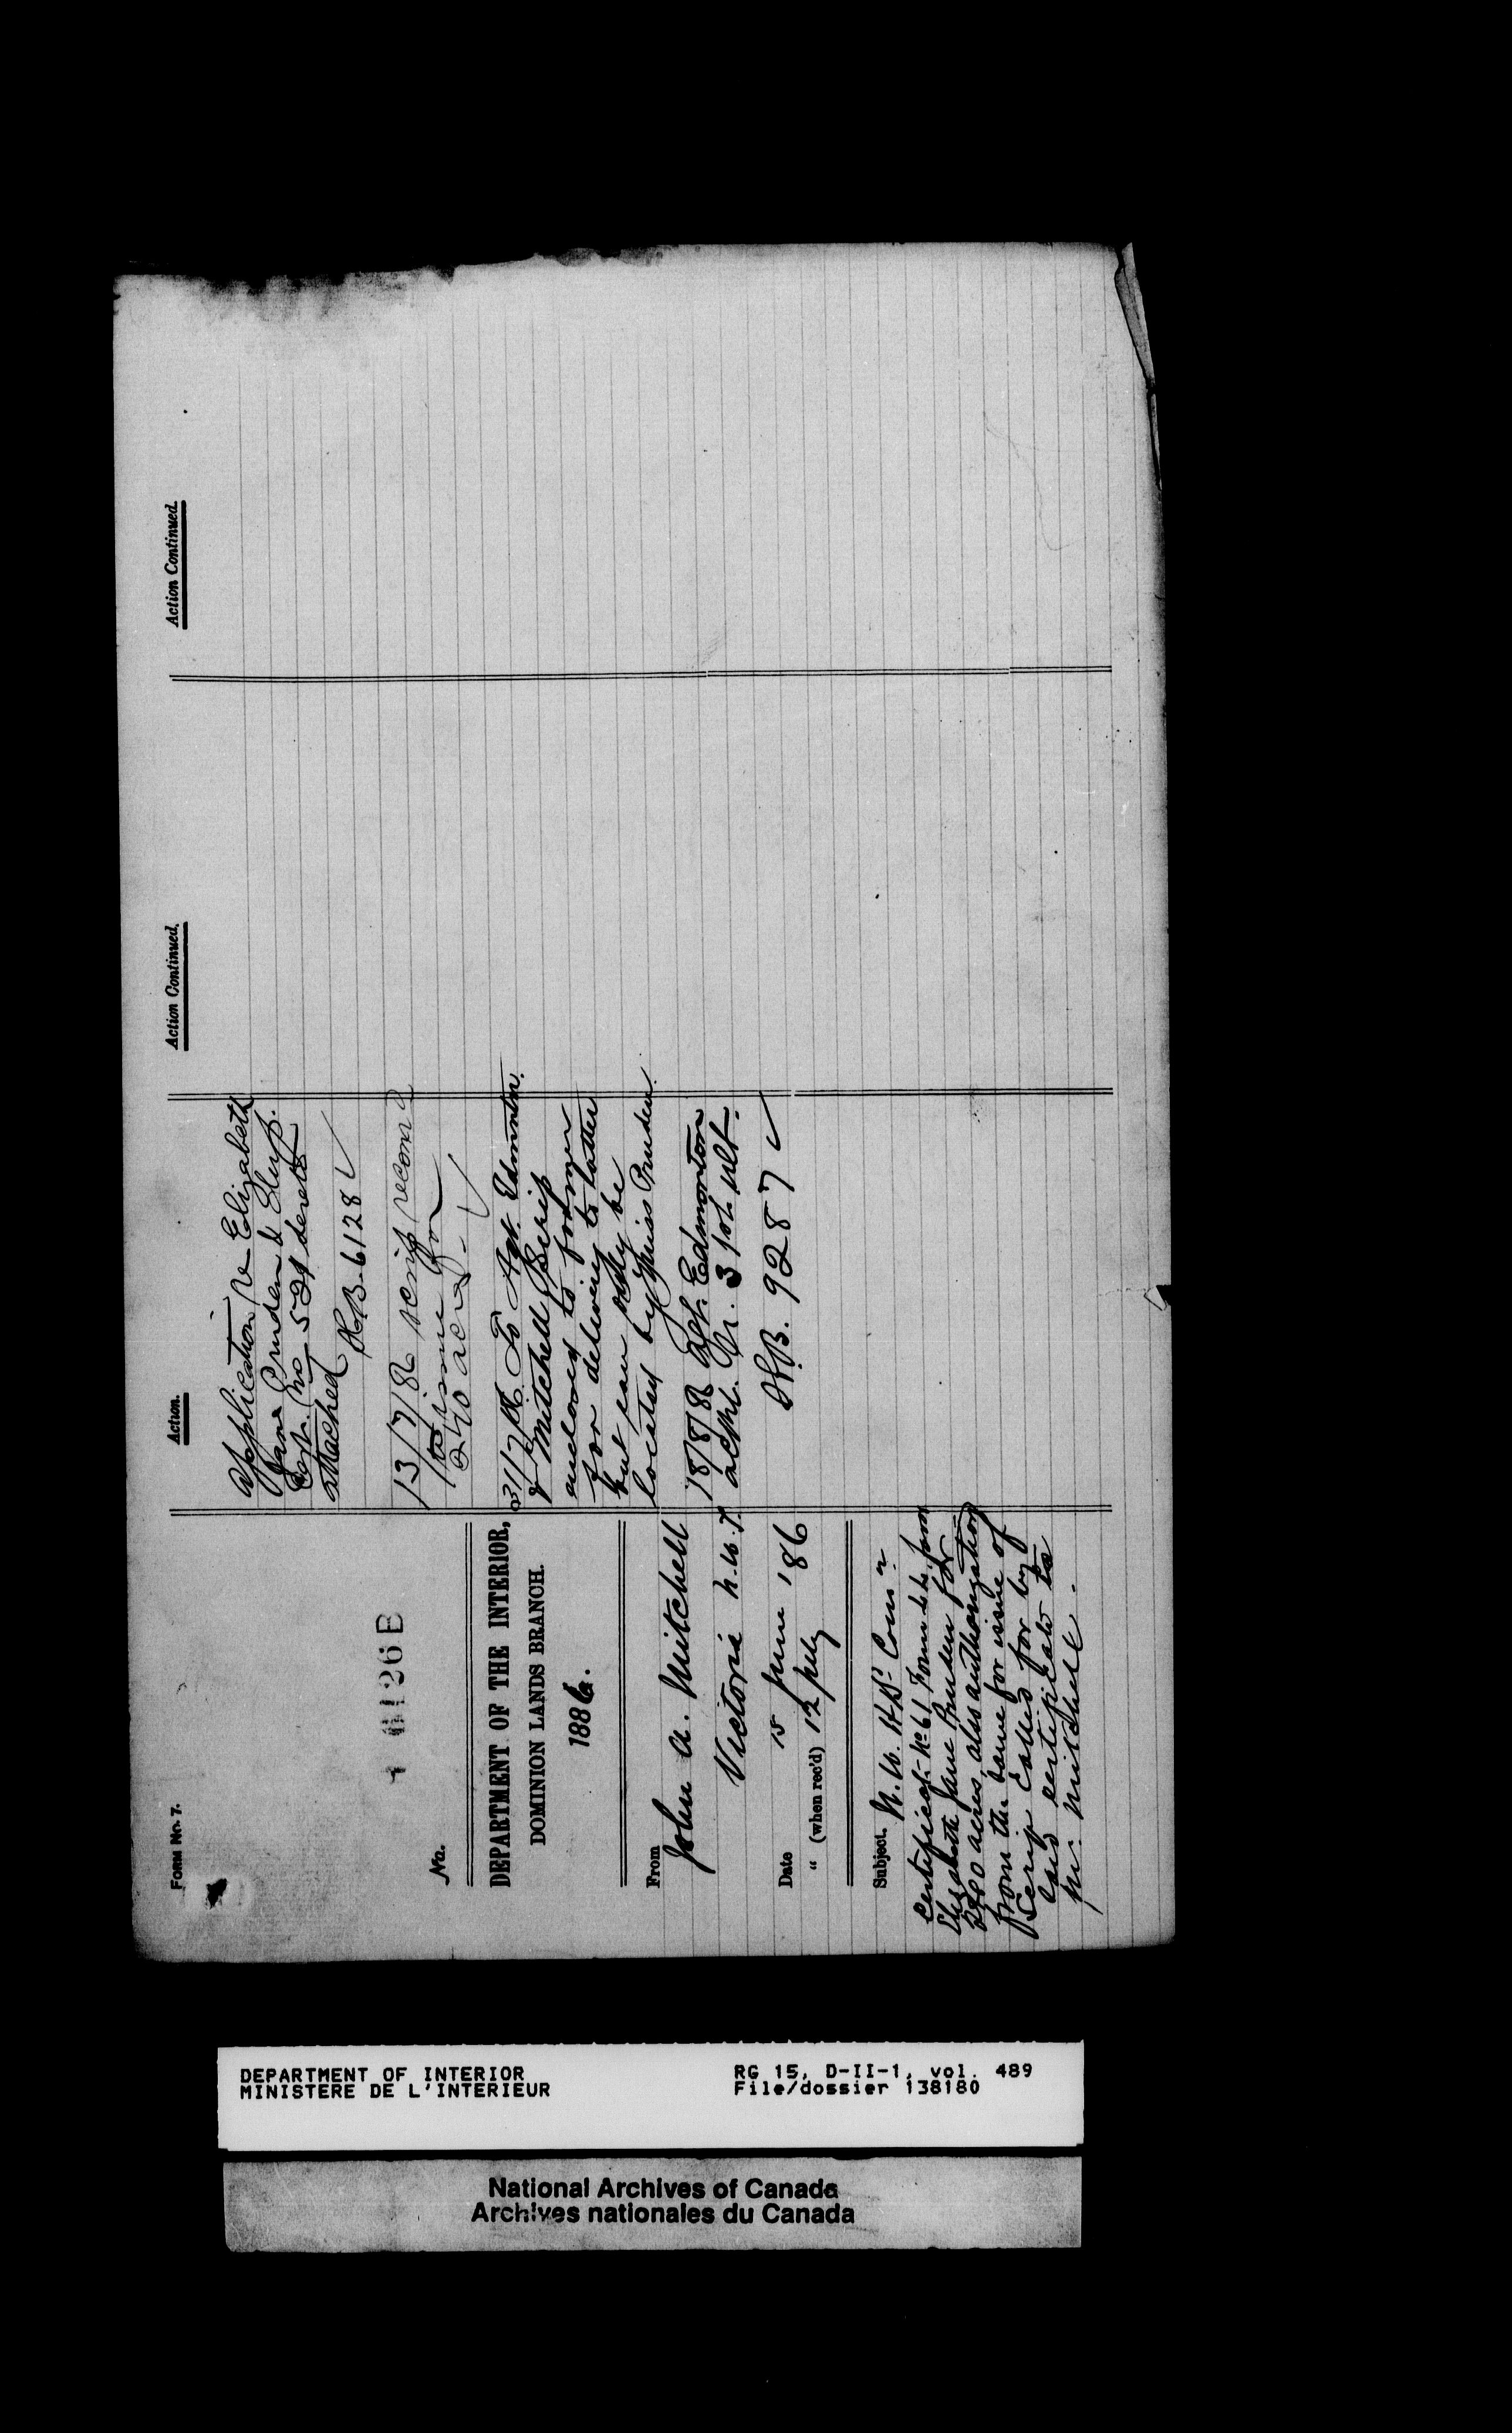 FORM No. 7.
126 E
No.
DEPARTMENT OF THE INTERIOR,
DOMINION LANDS BRANCH.
1886.
From
John A. Mitchell
Victoria N.W.T.
Date 15 June '86
" (when rec'd) 12 July
Subject. N.W. H.B. Com'n
Certificat. No 61 Form
Elizabeth Jane Pruden for
240 acres, also authorization
from the same for issue of
Scrip called for by
said certificate to
Mr. Mitchell.
Action.
Application re Elizabeth
Jane Pruden &
Cert. No. 521
attached
H.B. 6128
13/7/86 scrip recom
to issue for
240 acres.
31/7/86 To Agt. Edmonton
& Mitchell Scrip
enclosed to former
for delivery to latter
but can only be
located by Miss Pruden.
18/8/86 Agt. Edmonton
31st ult.
H.B. 9287
Action Continued.
Action Continued.
DEPARTMENT OF INTERIOR
MINISTERE DE L'INTERIEUR
RG 15, D-II-1, vol. 489
File/dossier 138180
National Archives of Canada
Archives nationales du Canada